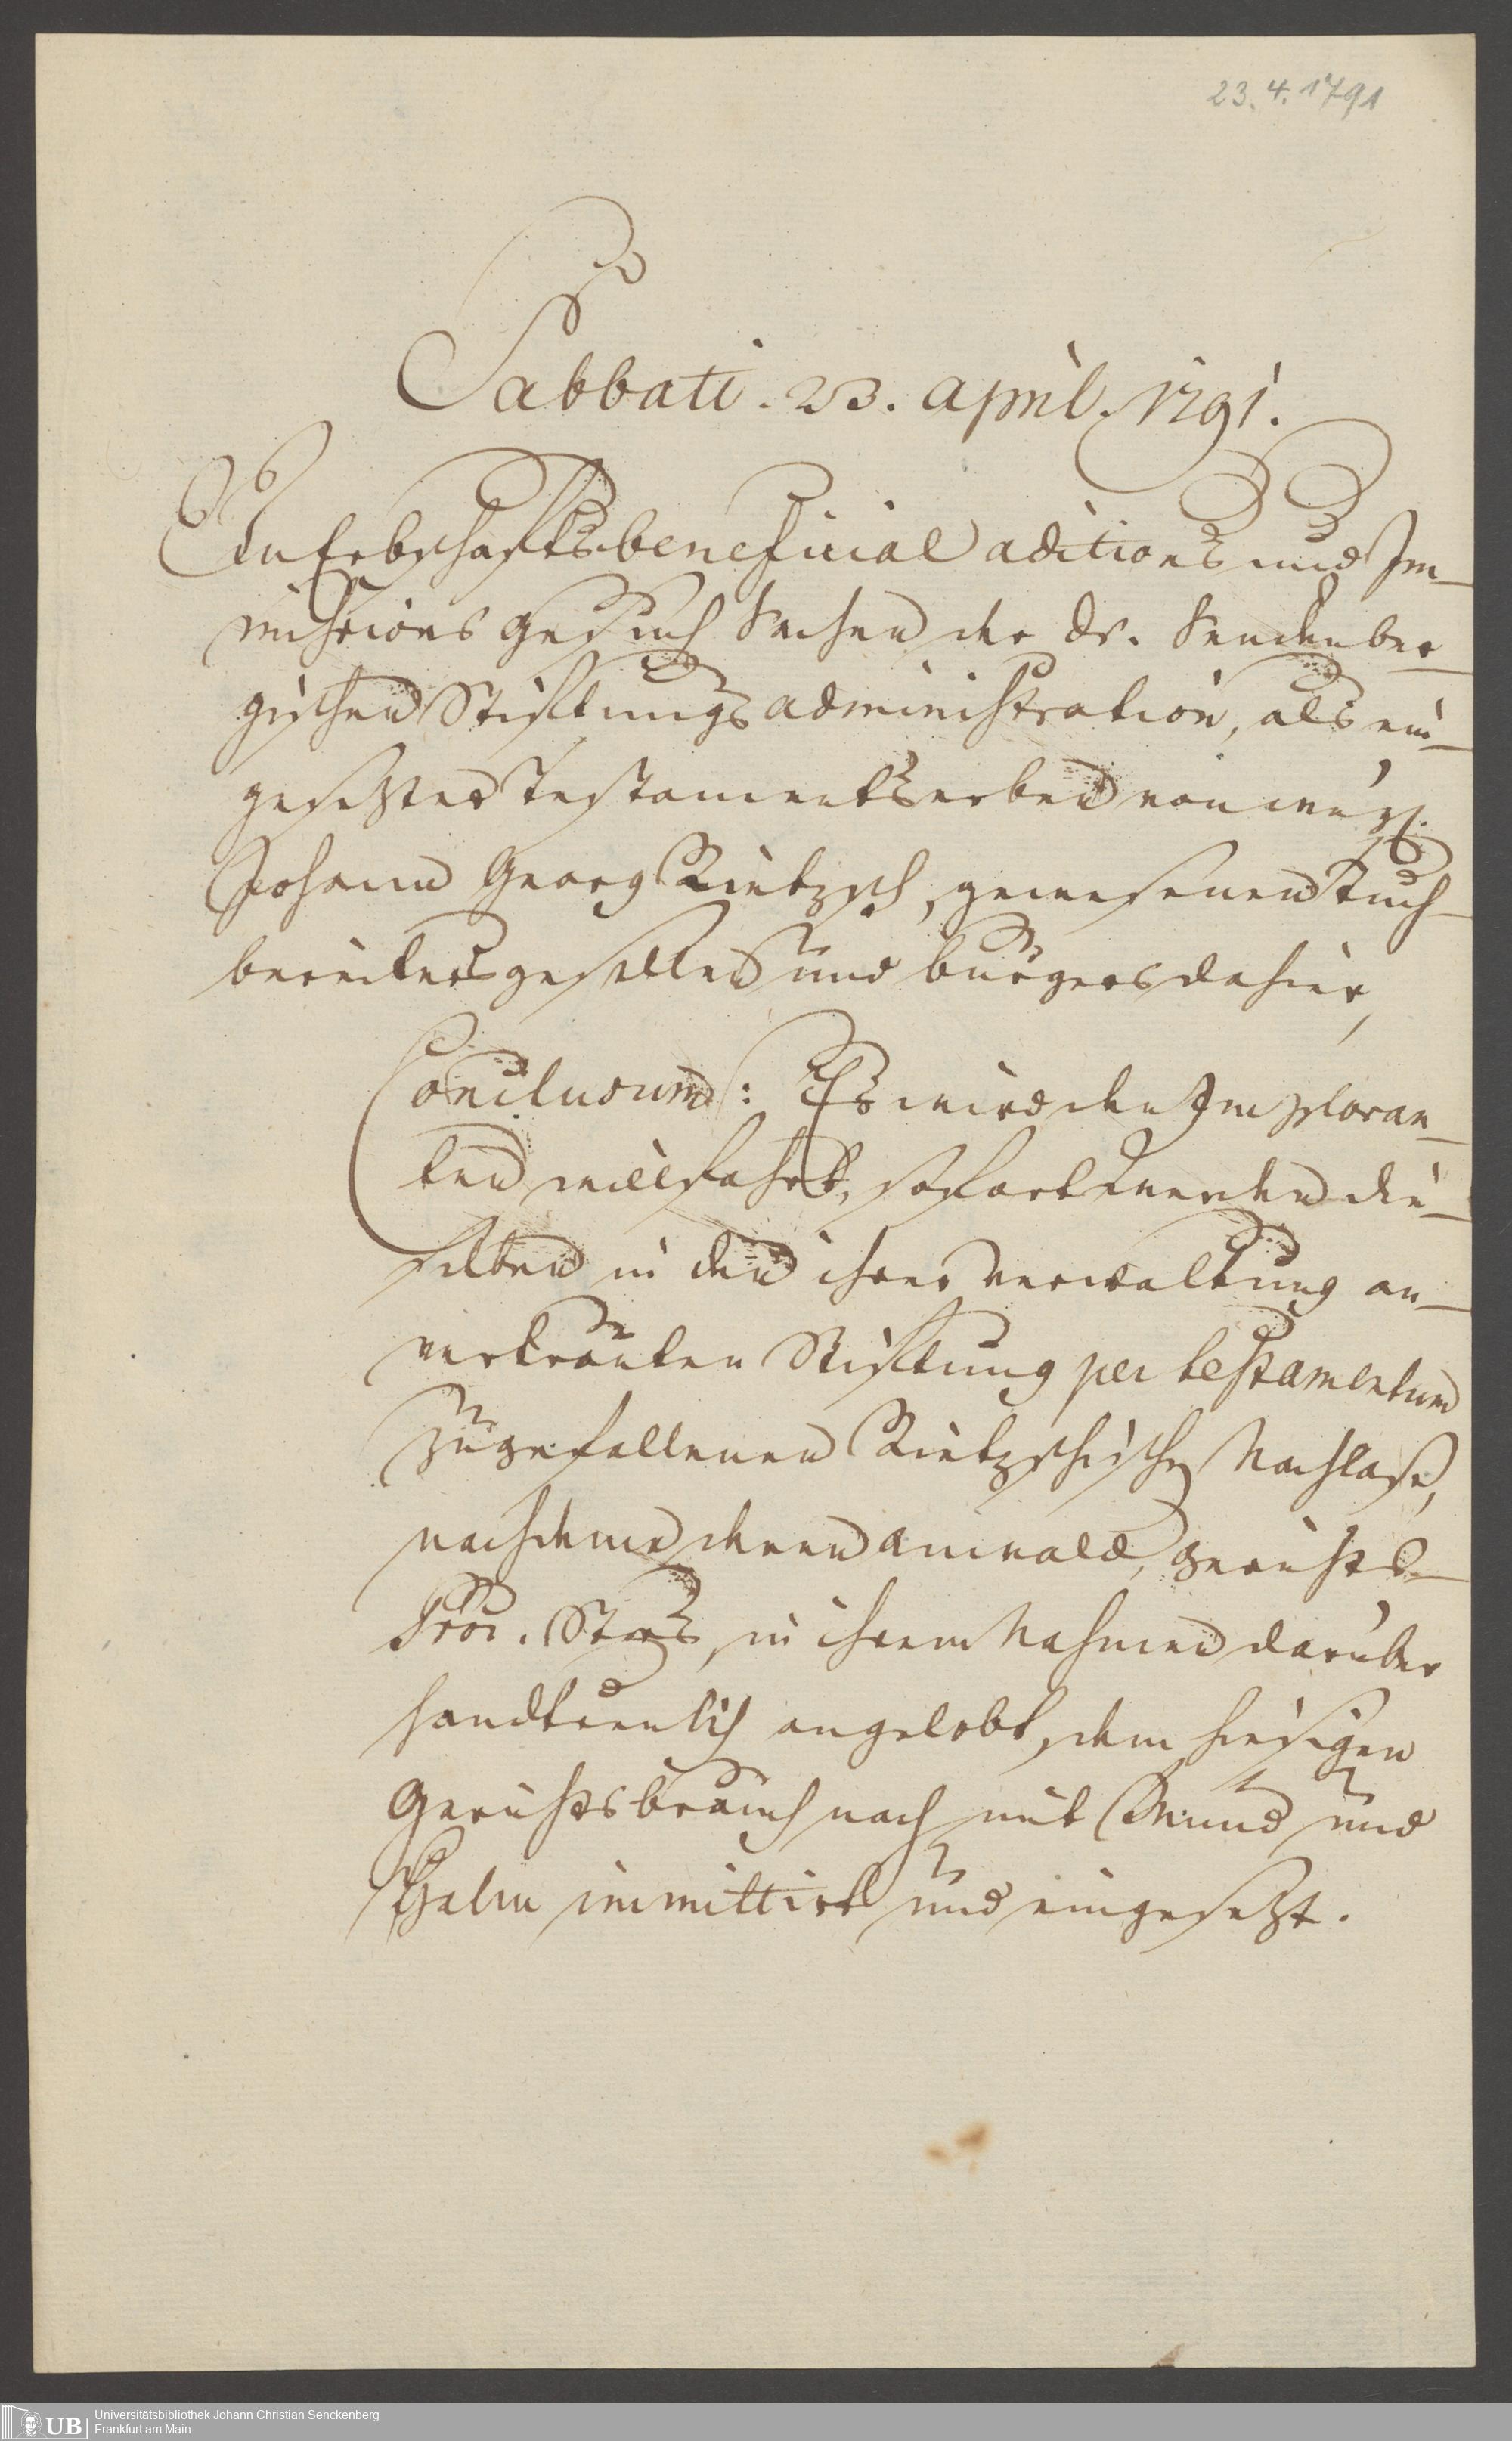 23.4.1791
Sabbati. 23. April. 1791.
In Erbschafts beneficial aditions und Im-
missions Gesuch Sachen der Dr. Senckenber-
gischen Stiftungs administration, als ein-
gesetzter Testaments erben von weyl.
Johann Georg Rietzsch, gewesenen Tuch-
bereitersgesellen und burgers dahier,
Conclusum: Es wird den Imploran-
ten willfahrt, sofort werden die-
selben in den ihrer verwaltung an-
vertrauten Stiftung per testamentum
zugefallenen Rietzschischen Nachlaß,
nachdeme deren anwald, Gerichts-
Proc. in ihrem Nahmen darüber
handtreulich angelobt, dem hiesigen
Gerichtsbrauch nach mit Mund und
Halm immittirt und eingesetzt.
UB
Universitätsbibliothek Johann Christian Senckenberg
Frankfurt am Main